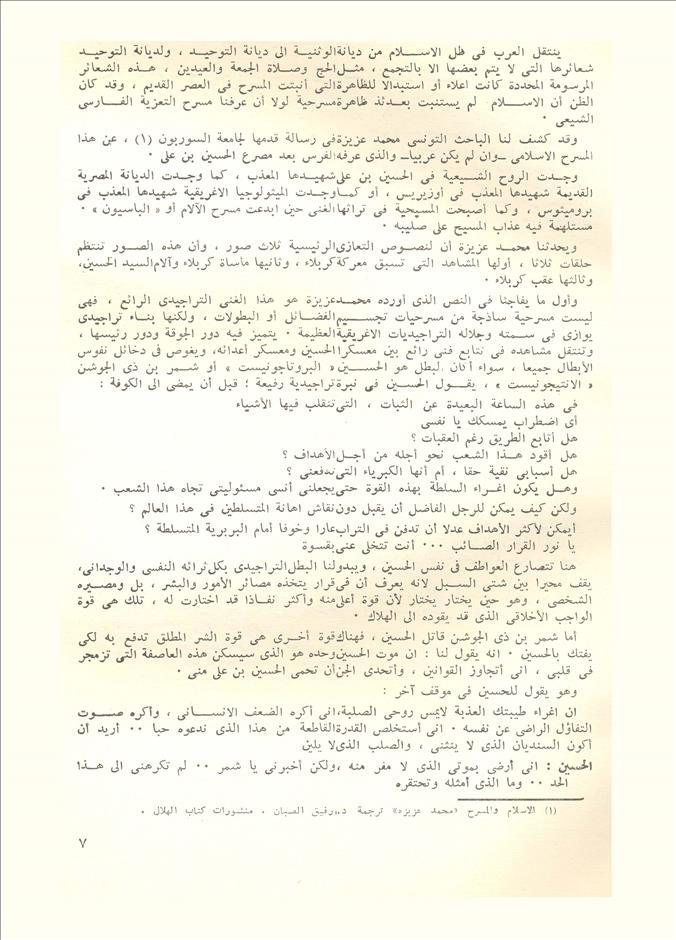 ينتقل العرب فى ظل الاسلام من ديانة الوثنية الى ديانة التوحيد ، ولديانة التوحيد
شعائرها التى لا يتم بعضها الا بالتجمع ، مثل الحج وصلاة الجمعة والعيدين ، هذه الشعائر
المرسومة المحددة كانت اعلاء أو استبدالا للظاهرة التى أنبتت المسرح فى العصر القديم ، وقد كان
الظن أن الاسلام لم يستنبت بعدئذ ظاهرة مسرحية لولا أن عرفنا مسرح التعزية الفارسى
الشيعى .
وقد كشف لنا الباحث التونسى محمد عزيزة فى رسالة قدمها لجامعة السوربون (١) ، عن هذا
المسرح الاسلامى ــ وان لم يكن عربيا ــ والذى عرفه الفرس بعد مصرع الحسين بن على .
وجدت الروح الشيعية فى الحسين بن على شهيدها المعذب ، كما وجدت الديانة المصرية
القديمة شهيدها المعذب فى أوزيريس ، أو كما وجدت الميثولوجيا الاغريقية شهيدها المعذب فى
بروميثوس ، وكما أصبحت المسيحية فى تراثها الغنى حين ابدعت مسرح الآلام أو « الباسيون » .
مستلهمة فيه عذاب المسيح على صليبه .
ويحدثنا محمد عزيزة أن لنصوص التعازى الرئيسية ثلاث صور ، وأن هذه الصور تنتظم
حلقات ثلاثا ، أولها المشاهد التى تسبق معركة كربلاء ، وثانيها مأساة كربلاء وآلام السيد الحسين،
وثالثها عقب كربلاء .
وأول ما يفاجئنا فى النص الذى أورده محمد عزيزة هو هذا الغنى التراجيدى الرائع ، فهى
ليست مسرحية ساذجة من مسرحيات تجسيم الفضائل أو البطولات ، ولكنها بناء تراجيدى
يوازى فى سمته وجلاله التراجيديات الاغريقية العظيمة . يتميز فيه دور الجوقة ودور رئيسها ،
وتنتقل مشاهده فى تتابع فنى رائع بين معسكر الحسين ومعسكر أعدائه، ويغوص فى دخائل نفوس
الأبطال جميعا ، سواء أكان البطل هو الحسين « البروتاجونيست » أو شمر بن ذى الجوشن
« الانتيجونيست » ، يقول الحسين فى نبرة تراجيدية رفيعة ؛ قبل أن يمضى الى الكوفة :
فى هذه الساعة البعيدة عن الثبات ، التى تنقلب فيها الأشياء
أى اضطراب يمسكك يا نفسى
هل أتابع الطريق رغم العقبات ؟
هل أقود هذا الشعب نحو أجله من أجل الأهداف ؟
هل أسبابى نقية حقا ، أم أنها الكبرياء التى تدفعنى ؟
وهل يكون اغراء السلطة بهذه القوة حتى يجعلنى أنسى مسئوليتى تجاه هذا الشعب .
ولكن كيف يمكن للرجل الفاضل أن يقبل دون نقاش اهانة المتسلطين فى هذا العالم ؟
أيمكن لأكثر الأهداف عدلا أن تدفن فى التراب عارا وخوفا أمام البربرية المتسلطة ؟
يا نور القرار الصائب ... أنت تتخلى عنى بقسوة
هنا تتصارع العواطف فى نفس الحسين ، ويبدو لنا البطل التراجيدى بكل ثرائه النفسى والوجدانى،
يقف محيرا بين شتى السبل لانه يعرف أن فى قرار يتخذه مصائر الأمور والبشر ، بل ومصيره
الشخصى ، وهو حين يختار يختار لأن قوة أعلى منه وأكثر نفاذا قد اختارت له ، تلك هى قوة
الواجب الأخلاقى الذى قد يقوده الى الهلاك .
أما شمر بن ذى الجوشن قاتل الحسين ، فهناك قوة أخرى هى قوة الشر المطلق تدفع به لكى
يفتك بالحسين . انه يقول لنا : ان موت الحسين وحده هو الذى سيسكن هذه العاصفة التى تزمجر
فى قلبى ، انى أتجاوز القوانين ، وأتحدى الجن أن تحمى الحسين بن على منى .
وهو يقول للحسين فى موقف آخر :
ان اغراء طيبتك العذبة لايمس روحى الصلبة، انى أكره الضعف الانسانى ، وأكره صوت
التفاؤل الراضى عن نفسه . انى أستخلص القدرة القاطعة من هذا الذى ندعوه حبا .. أريد أن
أكون السنديان الذى لا ينثنى ، والصلب الذى لا يلين
الحسين : انى أرضى بموتى الذى لا مفر منه ، ولكن أخبرنى يا شمر .. لم تكرهنى الى هذا
الحد .. وما الذى أمثله وتحتقره
(١) الاسلام والمسرح «محمد عزيزه» ترجمة د. رفيق الصبان . منشورات كتاب الهلال .
٧